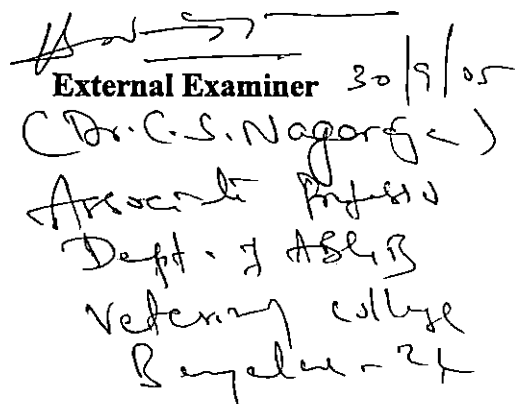 External Examiner 30/9/05
(Dr. C. S. Nagaraja)
Associate Professor
Dept. of AG&B
Veterinary college
Bangalore - 24